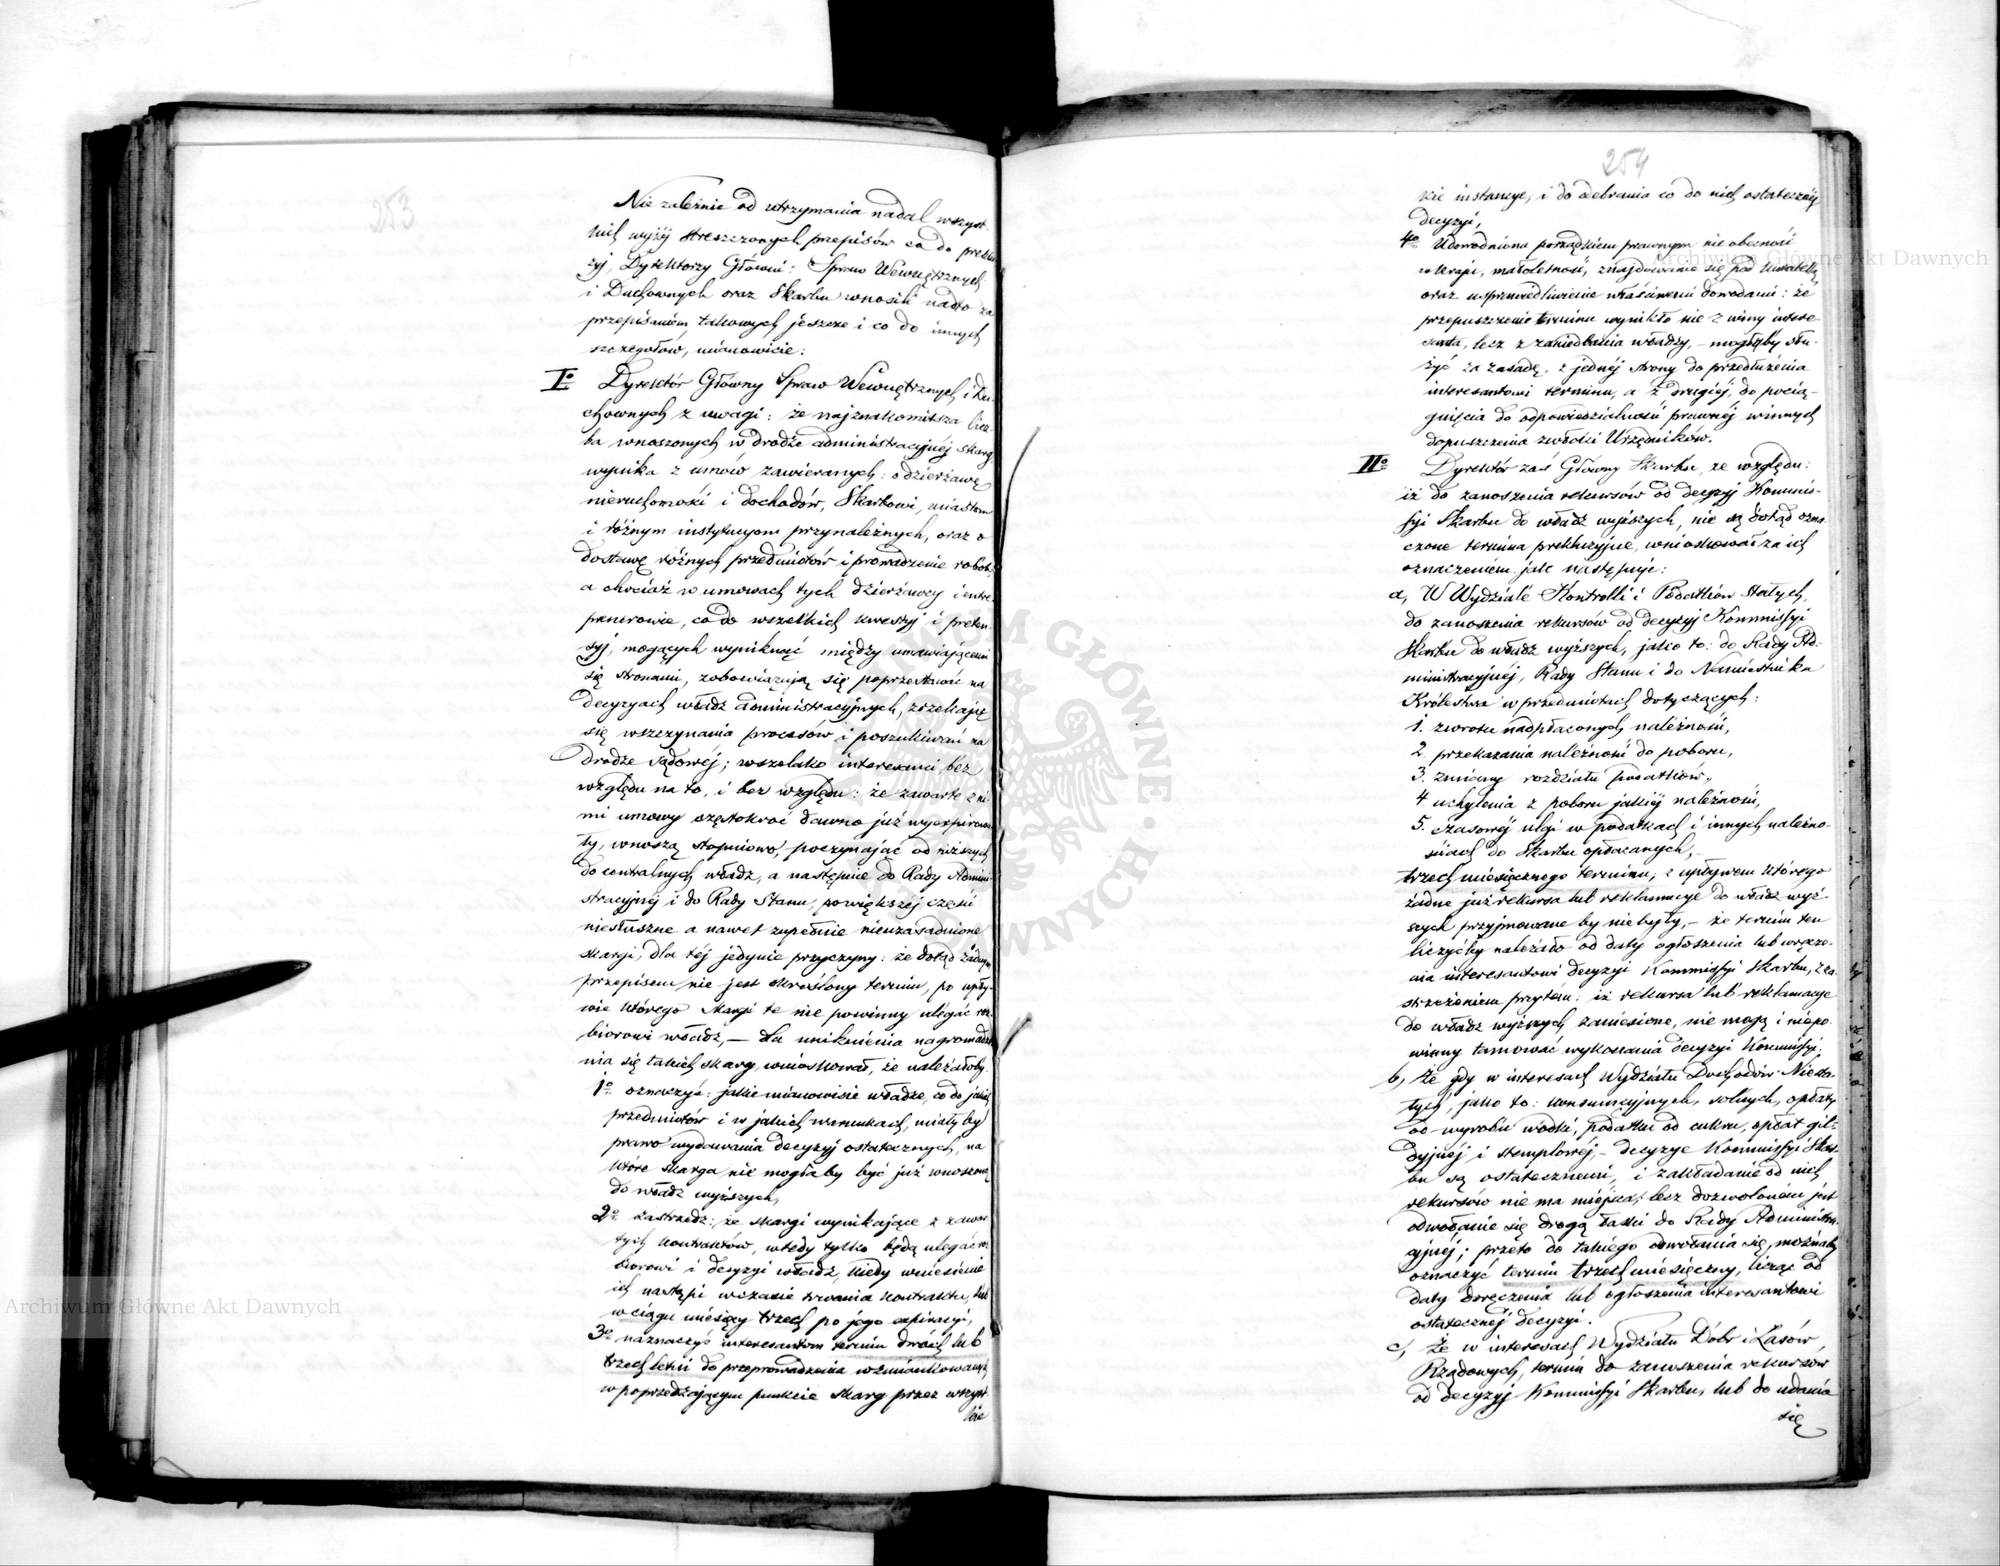 253
Nie zależnie od utrzymania nadal wszyst-
kich wyżej streszczonych przepisów co do preklu-
zyj, Dyrektorzy Główni: Spraw Wewnętrznych
i Duchownych oraz Skarbu wnosili nadto za
przepisaniem takowych jeszcze i co do innych
szczegółów, mianowicie:
I° Dyrektór Główny Spraw Wewnętrznych i Du-
chownych z uwagi: że najznakomitsza licz-
ba wnoszonych w drodze administracyjnéj skarg
wynika z umów zawieranych: o dzierżawę
nieruchomości i dochodów, Skarbowi, miastom
i różnym instytucyom przynależnych, oraz o
dostawę różnych przedmiotów i prowadzenie robót,
a chociaż w umowach tych dzierżawcy i entre-
prenerowie, co do wszelkich kwestyj i preten-
syj, mogących wyniknąć między umawiającemi
się stronami, zobowiązują się poprzestawać na
decyzyach władz administracyjnych, zrzekając
się wszczynania procesów i poszukiwań na
drodze sądowéj; wszelako interesanci, bez
względu na to, i bez względu: że zawarte z ni-
mi umowy częstokroć dawno już wyexpirowa-
ły, wnoszą stopniowo, poczynając od niższych
do centralnych władz, a następnie do Rady Admini-
stracyjnéj i do Rady Stanu, powiększej części
niesłuszne a nawet zupełnie nieuzasadnione
skargi, dla téj jedynie przyczyny: że dotąd żadnym
przepisem nie jest określony termin, po upły-
wie którego skargi te nie powinny ulegać roz-
biorowi władz, — dla uniknienia nagromadze-
nia się takich skarg, wnioskował, że należałoby:
1° oznaczyć: jakie mianowicie władze, co do jakich
przedmiotów i w jakich warunkach, miały by
prawo wydawania decyzyj ostatecznych, na
które skarga nie mogła by być już wnoszoną
do władz wyższych,
2° zastrzedz: że skargi wynikające z zawar-
tych kontraktów, wtedy tylko będą ulegać roz-
biorowi i decyzyi władz, kiedy wniesienie
ich nastąpi w czasie trwania kontraktu, lub
w ciągu miesięcy trzech po jego expiracyi,
3° naznaczyć interesantom termin dwóch lub
trzech letni do przeprowadzenia wzmiankowanych
w poprzedzającym punkcie skarg przez wszyst-
kie
254
kie instancye, i do odebrania co do nich ostatecznéj
decyzyi,
4° Udowodniona porządkiem prawnym nie obecność
w kraju, małoletność, znajdowanie się pod kuratelą
oraz usprawiedliwienie właściwemi dowodami: że
przepuszczenie terminu wynikło nie z winy intere-
santa, lecz z zaniedbania władzy, – mogłyby słu-
żyć za zasadę, z jednéj strony do przedłużenia
interesantowi terminu, a z drugiéj, do pocią-
gnięcia do odpowiedzialności prawnéj winnych
dopuszczenia zwłoki Urzędników.
II° Dyrektór zaś Główny Skarbu, ze względu:
iż do zanoszenia rekursów od decyzyj Kommis-
syi Skarbu do władz wyższych, nie są dotąd ozna-
czone termina prekluzyjne, wnioskował za ich
oznaczeniem jak następuje:
a, W Wydziale Kontrolli i Podatków Stałych,
do zanoszenia rekursów od decyzyj Kommissyi
Skarbu do władz wyższych, jako to: do Rady Ad-
ministracyjnéj, Rady Stanu i do Namiestnika
Królestwa w przedmiotach dotyczących:
1. zwrotu nadpłaconych należności,
2. przekazania należności do poboru,
3. zmiany rozdziału podatków,
4 uchylenia z poboru jakiéj należności,
5. czasowéj ulgi w podatkach i innych należno-
ściach do Skarbu opłacanych,
trzech miesięcznego terminu, z upływem którego
żadne już rekursa lub reklamacye do władz wyż-
szych przyjmowane by nie były, – że termin ten
liczyćby należało od daty ogłoszenia lub wręcze-
nia interesantowi decyzyi Kommissyi Skarbu, z za-
strzeżeniem przytém: iż rekursa lub reklamacye
do władz wyższych zaniesione, nie mogą i niepo-
winny tamować wykonania decyzyi Kommissyi.
b, że gdy w interesach Wydziału Dochodów Niesta-
łych, jako to: konsumcyjnych, solnych, opłaty
od wyrobu wódki, podatku od cukru, opłat gil-
dyjnéj i stemplowéj, – decyzye Kommissyi Skar-
bu są ostatecznemi, i zakładanie od nich
rekursów nie ma miejsca, lecz dozwoloném jest
odwołanie się drogą łaski do Rady Administra-
cyjnéj; przeto do takiego odwołania się, możnaby
oznaczyć termin trzech miesięczny, licząc od
daty doręczenia lub ogłoszenia interesantowi
ostatecznéj decyzyi.
c, Że w interesach Wydziału Dóbr i Lasów
Rządowych, termin do zanoszenia rekursów
od decyzyj Kommissyi Skarbu, lub do udania
się
Archiwum Główne Akt Dawnych
Archiwum Główne Akt Dawnych
ARCHIWUM GŁÓWNE AKT DAWNYCH